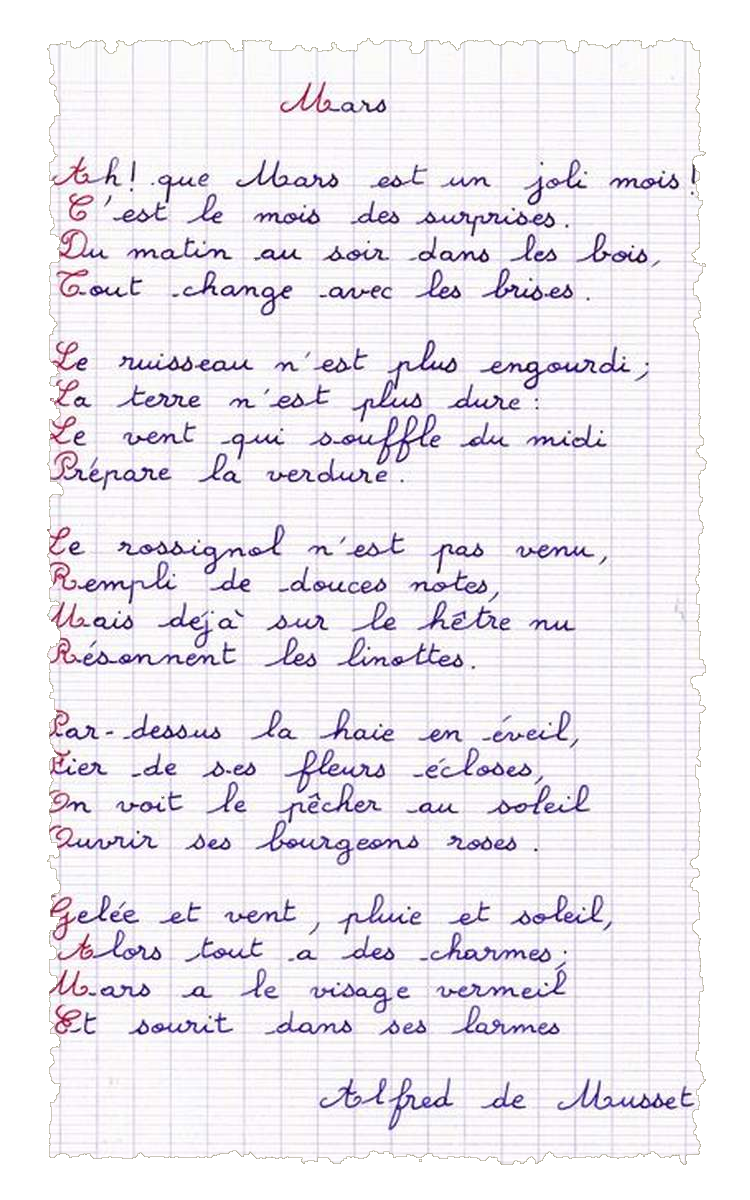 Mars
Ah! que Mars est un joli mois!
C'est le mois des surprises.
Du matin au soir dans les bois,
Tout change avec les brises.
Le ruisseau n'est plus engourdi;
La terre n'est plus dure:
Le vent qui souffle du midi
Prépare la verdure.
Le rossignol n'est pas venu,
Rempli de douces notes,
Mais déjà sur le hêtre nu
Résonnent les linottes.
Par-dessus la haie en éveil,
Fier de ses fleurs écloses,
On voit le pêcher au soleil
Ouvrir ses bourgeons roses.
Gelée et vent, pluie et soleil,
Alors tout a des charmes;
Mars a le visage vermeil
Et sourit dans ses larmes
Alfred de Musset